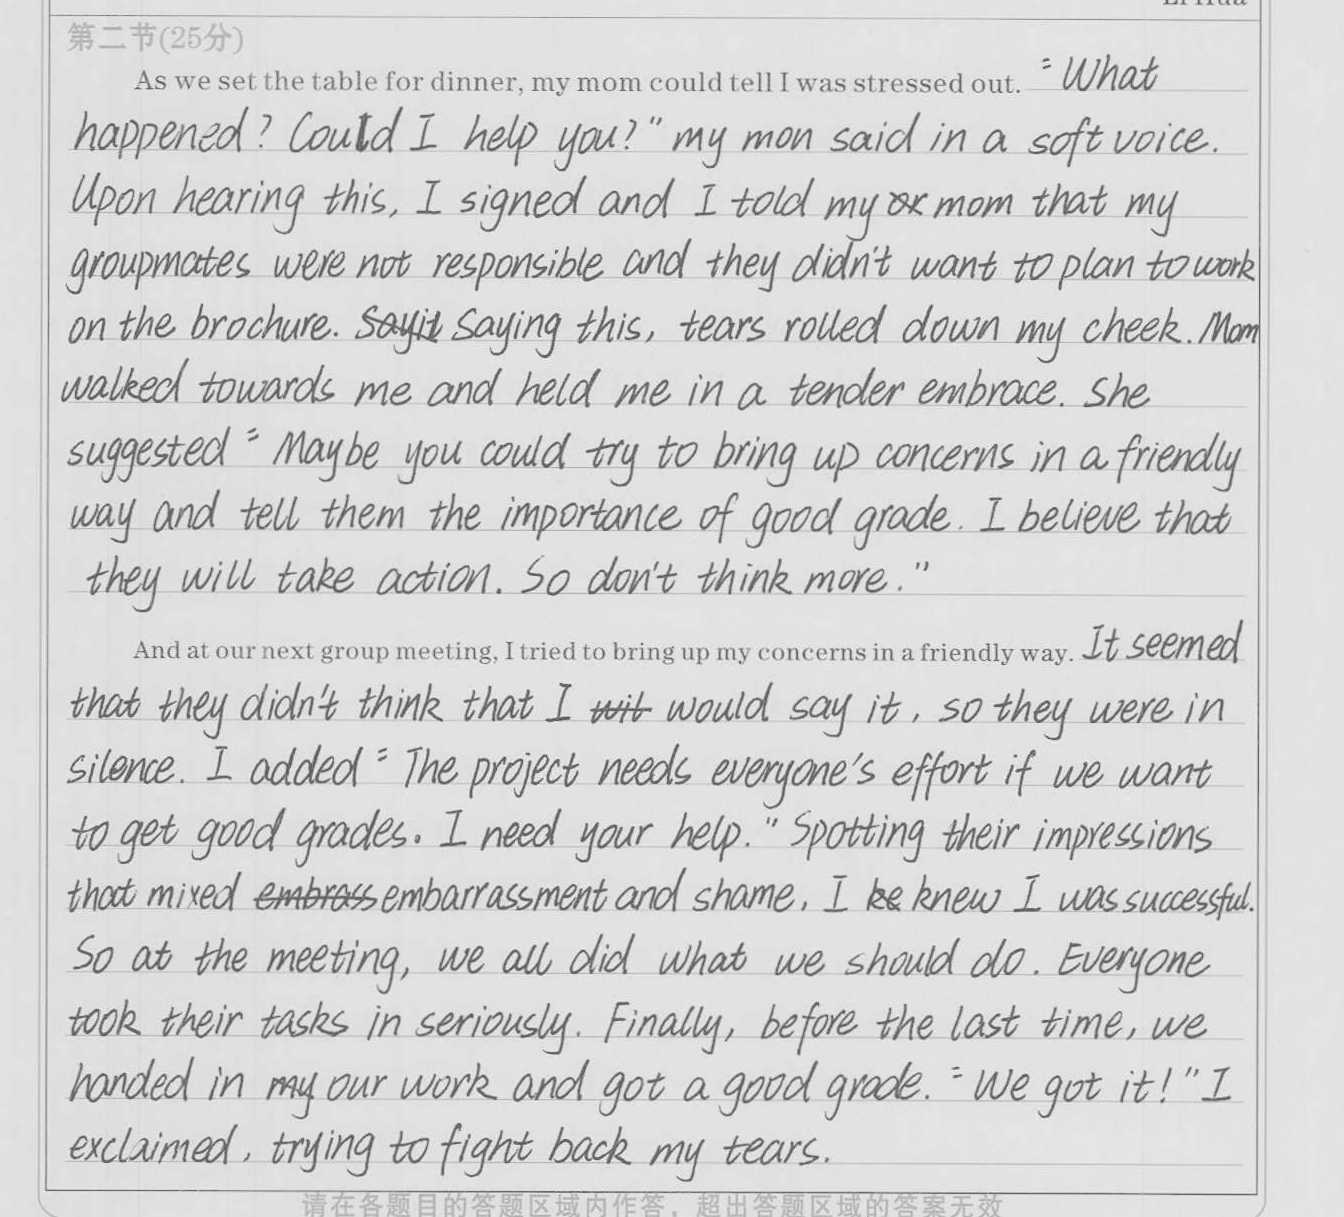 第二节(25分)
As we set the table for dinner, my mom could tell I was stressed out. "What
happened? Could I help you?" my mon said in a soft voice.
Upon hearing this, I signed and I told my mom that my
groupmates were not responsible and they didn't want to plan to work
on the brochure. Saying this, tears rolled down my cheek. Mom
walked towards me and held me in a tender embrace. She
suggested "Maybe you could try to bring up concerns in a friendly
way and tell them the importance of good grade. I believe that
they will take action. So don't think more."
And at our next group meeting, I tried to bring up my concerns in a friendly way. It seemed
that they didn't think that I would say it, so they were in
silence. I added "The project needs everyone's effort if we want
to get good grades. I need your help." Spotting their impressions
that mixed embarrassment and shame, I knew I was successful.
So at the meeting, we all did what we should do. Everyone
took their tasks in seriously. Finally, before the last time, we
handed in our work and got a good grade. "We got it!" I
exclaimed, trying to fight back my tears.
请在各题目的答题区域内作答，超出答题区域的答案无效